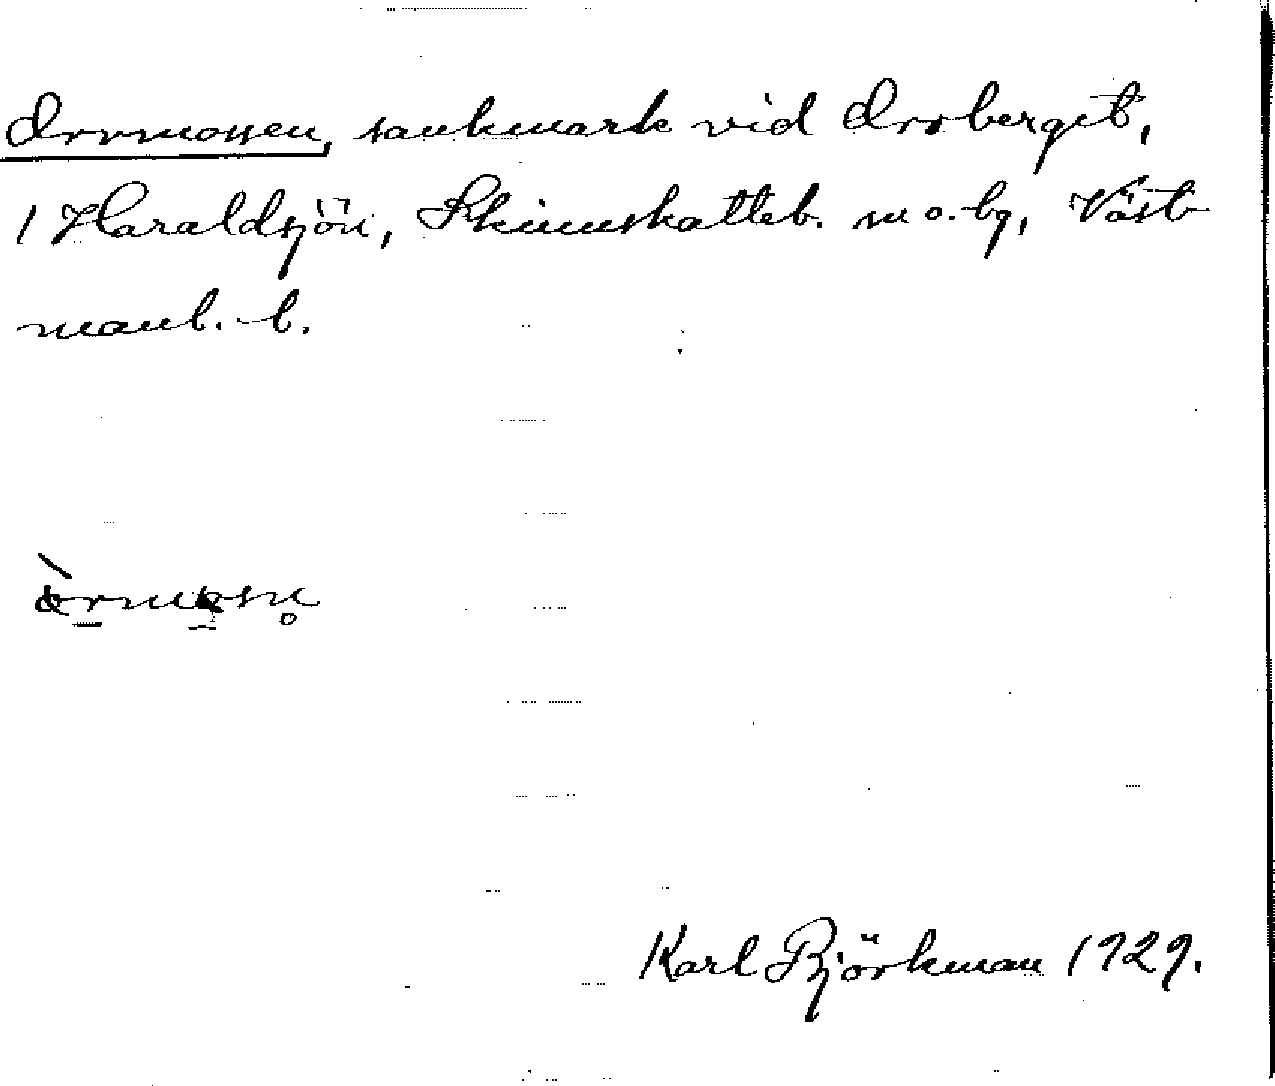 Orrmossen, sankmark vid Orrberget,
1 Haraldsjön, Skinnskatteb. m o. bg, Väst-
manl. l.
Karl Björkman 1929.